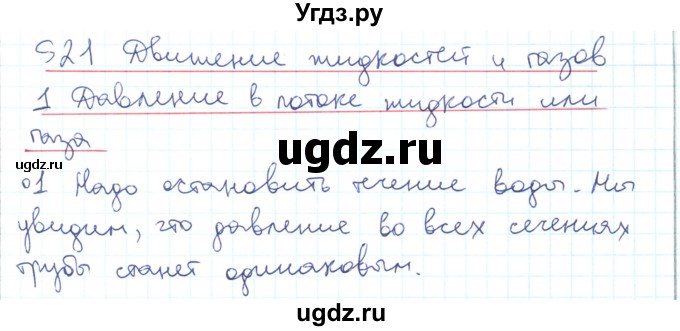 Угдз.ру
§21 Движение жидкостей и газов
1 Давление в потоке жидкости или
газа
угdz.ru
ugdz.ru
ugdz.ru
о1 Надо остановить течение воды. Мы
увидим, что давление во всех сечениях
трубы станет одинаковым.
ugdz.ru
ugdz.ru